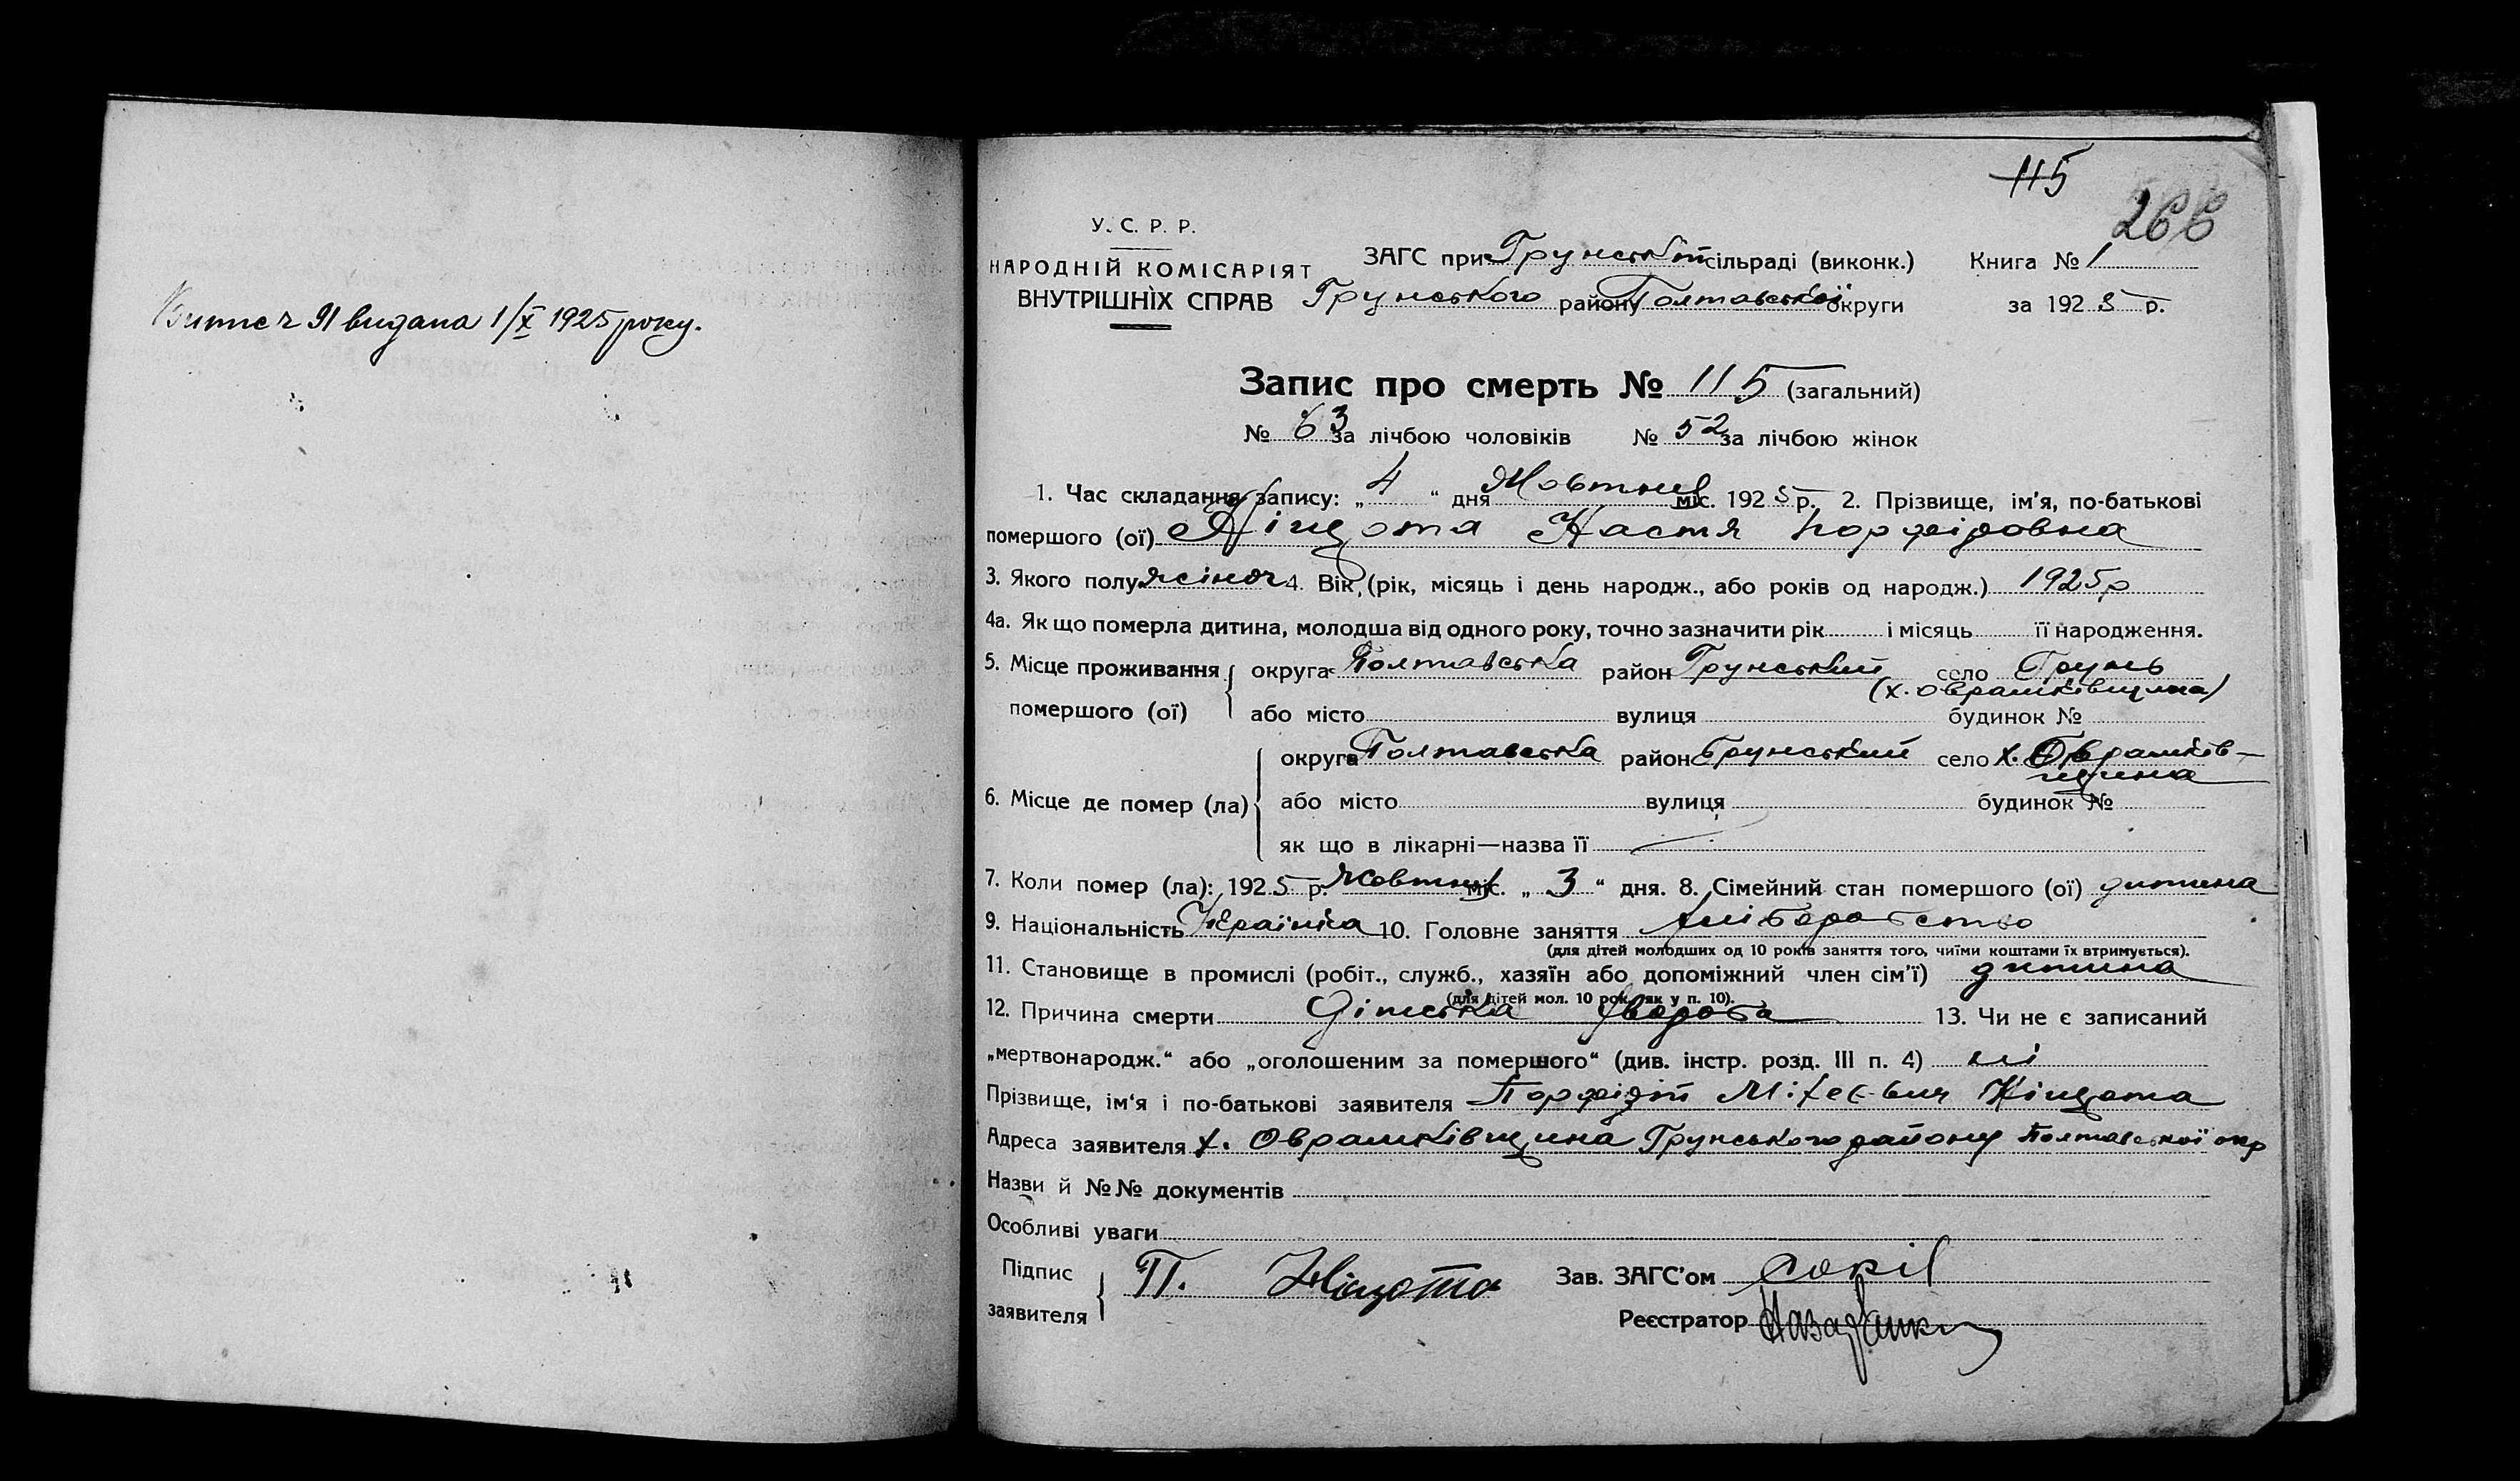 видана 1/X 1925 року.
115
266
У. С. Р. Р.
НАРОДНІЙ КОМІСАРІЯТ
ВНУТРІШНІХ СПРАВ
ЗАГС при Грунській сільраді (виконк.) Книга № 1
Грунського району Полтавської округи за 1925 р.
Запис про смерть № 115 (загальний)
№ 63 за лічбою чоловіків № 52 за лічбою жінок
1. Час складання запису: „ 4 “ дня Жовтня міс. 1925 р. 2. Прізвище, ім'я, по-батькові
помершого (ої) Кіщота Настя Порфірովна
3. Якого полу жіноч 4. Вік, (рік, місяць і день народж., або років од народж.) 1925 р
4а. Як що померла дитина, молодша від одного року, точно зазначити рік і місяць її народження.
5. Місце проживання помершого (ої) округа Полтавська район Грунський село Грунь
(х. Оврамківщина)
або місто вулиця будинок №
6. Місце де помер (ла) округа Полтавська район Грунський село х. Оврамків-
щина
або місто вулиця будинок №
як що в лікарні—назва її
7. Коли помер (ла): 1925 р. Жовтня міс. „ 3 “ дня. 8. Сімейний стан помершого (ої) дитина
9. Національність Українка 10. Головне заняття хліборобство
(для дітей молодших од 10 років заняття того, чиїми коштами їх втримується).
11. Становище в промислі (робіт., служб., хазяїн або допоміжний член сім'ї) дитина
(для дітей мол. 10 рок. як у п. 10).
12. Причина смерти Дітська хвороба 13. Чи не є записаний
„мертвонародж.“ або „оголошеним за помершого“ (див. інстр. розд. III п. 4) ні
Прізвище, ім'я і по-батькові заявителя Порфірій Кіщота
Адреса заявителя х. Оврамківщина Грунського району Полтавської окр
Назви й №№ документів
Особливі уваги
Підпис заявителя П. Кіщота Зав. ЗАГС'ом
Реєстратор